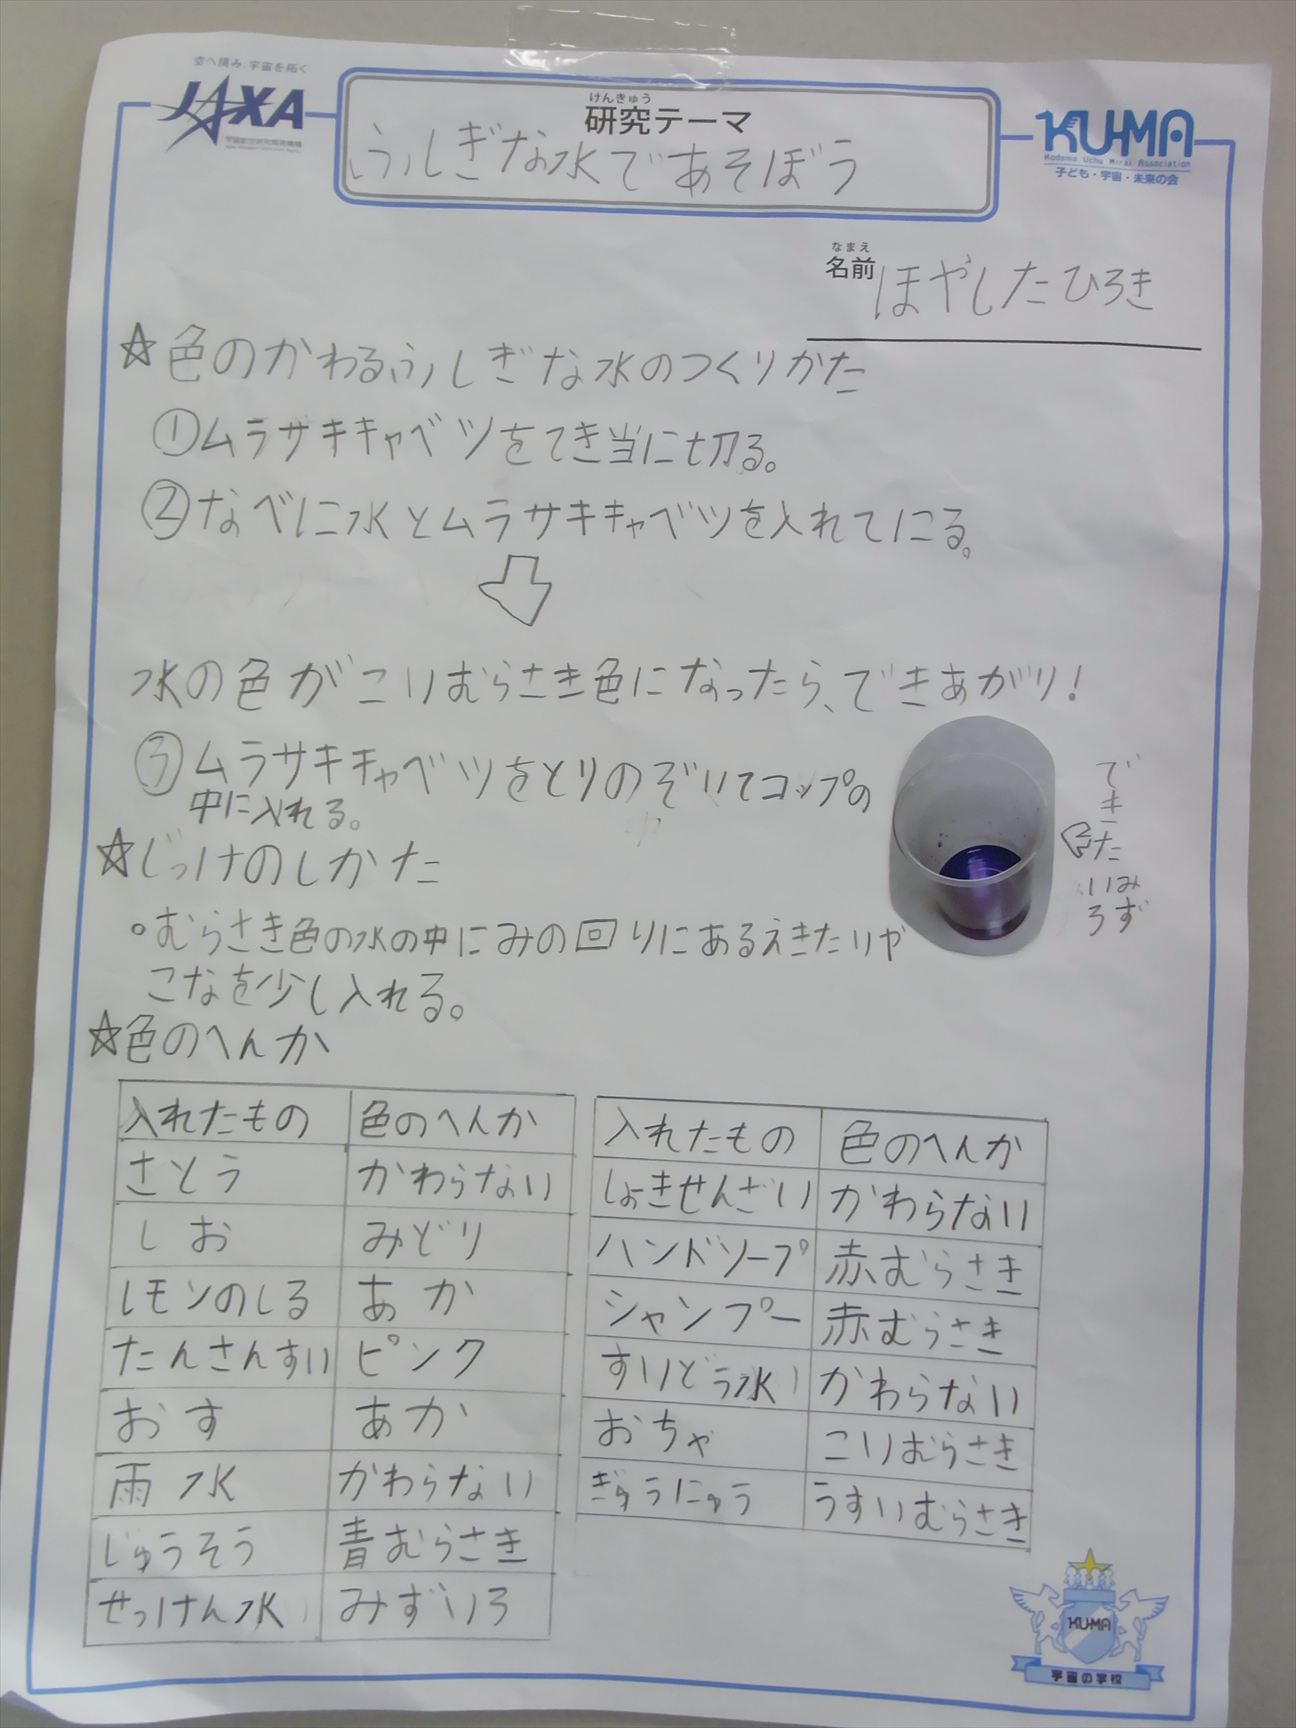 空へ挑み、宇宙を拓く
JAXA
宇宙航空研究開発機構
けんきゅう
研究テーマ
ふしぎな水であそぼう
KU-MA
Kodomo Uchu Mirai Association
子ども・宇宙・未来の会
なまえ
名前
ほやしたひろき
☆色のかわるふしぎな水のつくりかた
①ムラサキキャベツをてき当に切る。
②なべに水とムラサキキャベツを入れてにる。
水の色がこいむらさき色になったら、できあがり!
③ムラサキキャベツをとりのぞいてコップの
中に入れる。
できた
いろ
みず
☆じっけのしかた
。むらさき色の水の中にみの回りにあるえきたいや
こなを少し入れる。
☆色のへんか
入れたもの 色のへんか
さとう かわらない
しお みどり
レモンのしる あか
たんさんすい ピンク
おす あか
雨水 かわらない
じゅうそう 青むらさき
せっけん水 みずいろ
入れたもの 色のへんか
しょきせんざい かわらない
ハンドソープ 赤むらさき
シャンプー 赤むらさき
すいどう水 かわらない
おちゃ こいむらさき
ぎゅうにゅう うすいむらさき
KU-MA
宇宙の学校